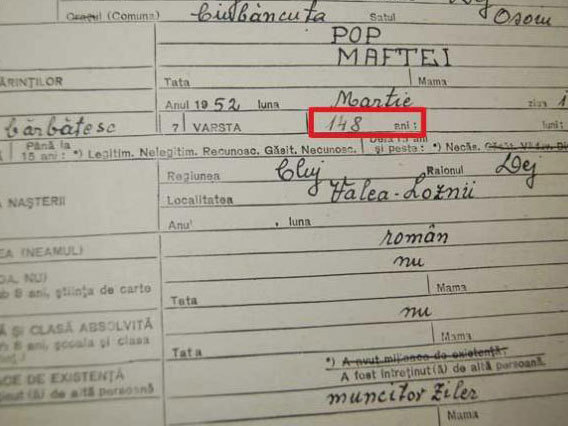 Orașul (Comuna) Ciubăncuța Satul Osou
POP
MAFTEI
ĂRINȚILOR Tata Mama
Anul 1952 luna Martie ziua 1
bărbătesc 7 VARSTA 148 ani: luni:
Până la 15 ani: *) Legitim. Nelegitim. Recunosc. Găsit. Necunosc. și peste: *) Necăs.
Regiunea Cluj Raionul Dej
A NAȘTERII Localitatea Valea-Loznii
Anul , luna
EA (NEAMUL) român
DA, NU) nu
ub 8 ani, știința de carte Tata Mama
Ă ȘI CLASĂ ABSOLVITĂ nu
b 8 ani, școala și clasa Tata Mama
*) A avut mijloace de existență;
CE DE EXISTENȚĂ A fost întreținut (ă) de altă persoană
ținut (ă) de altă persoană muncitor ziler
Mama